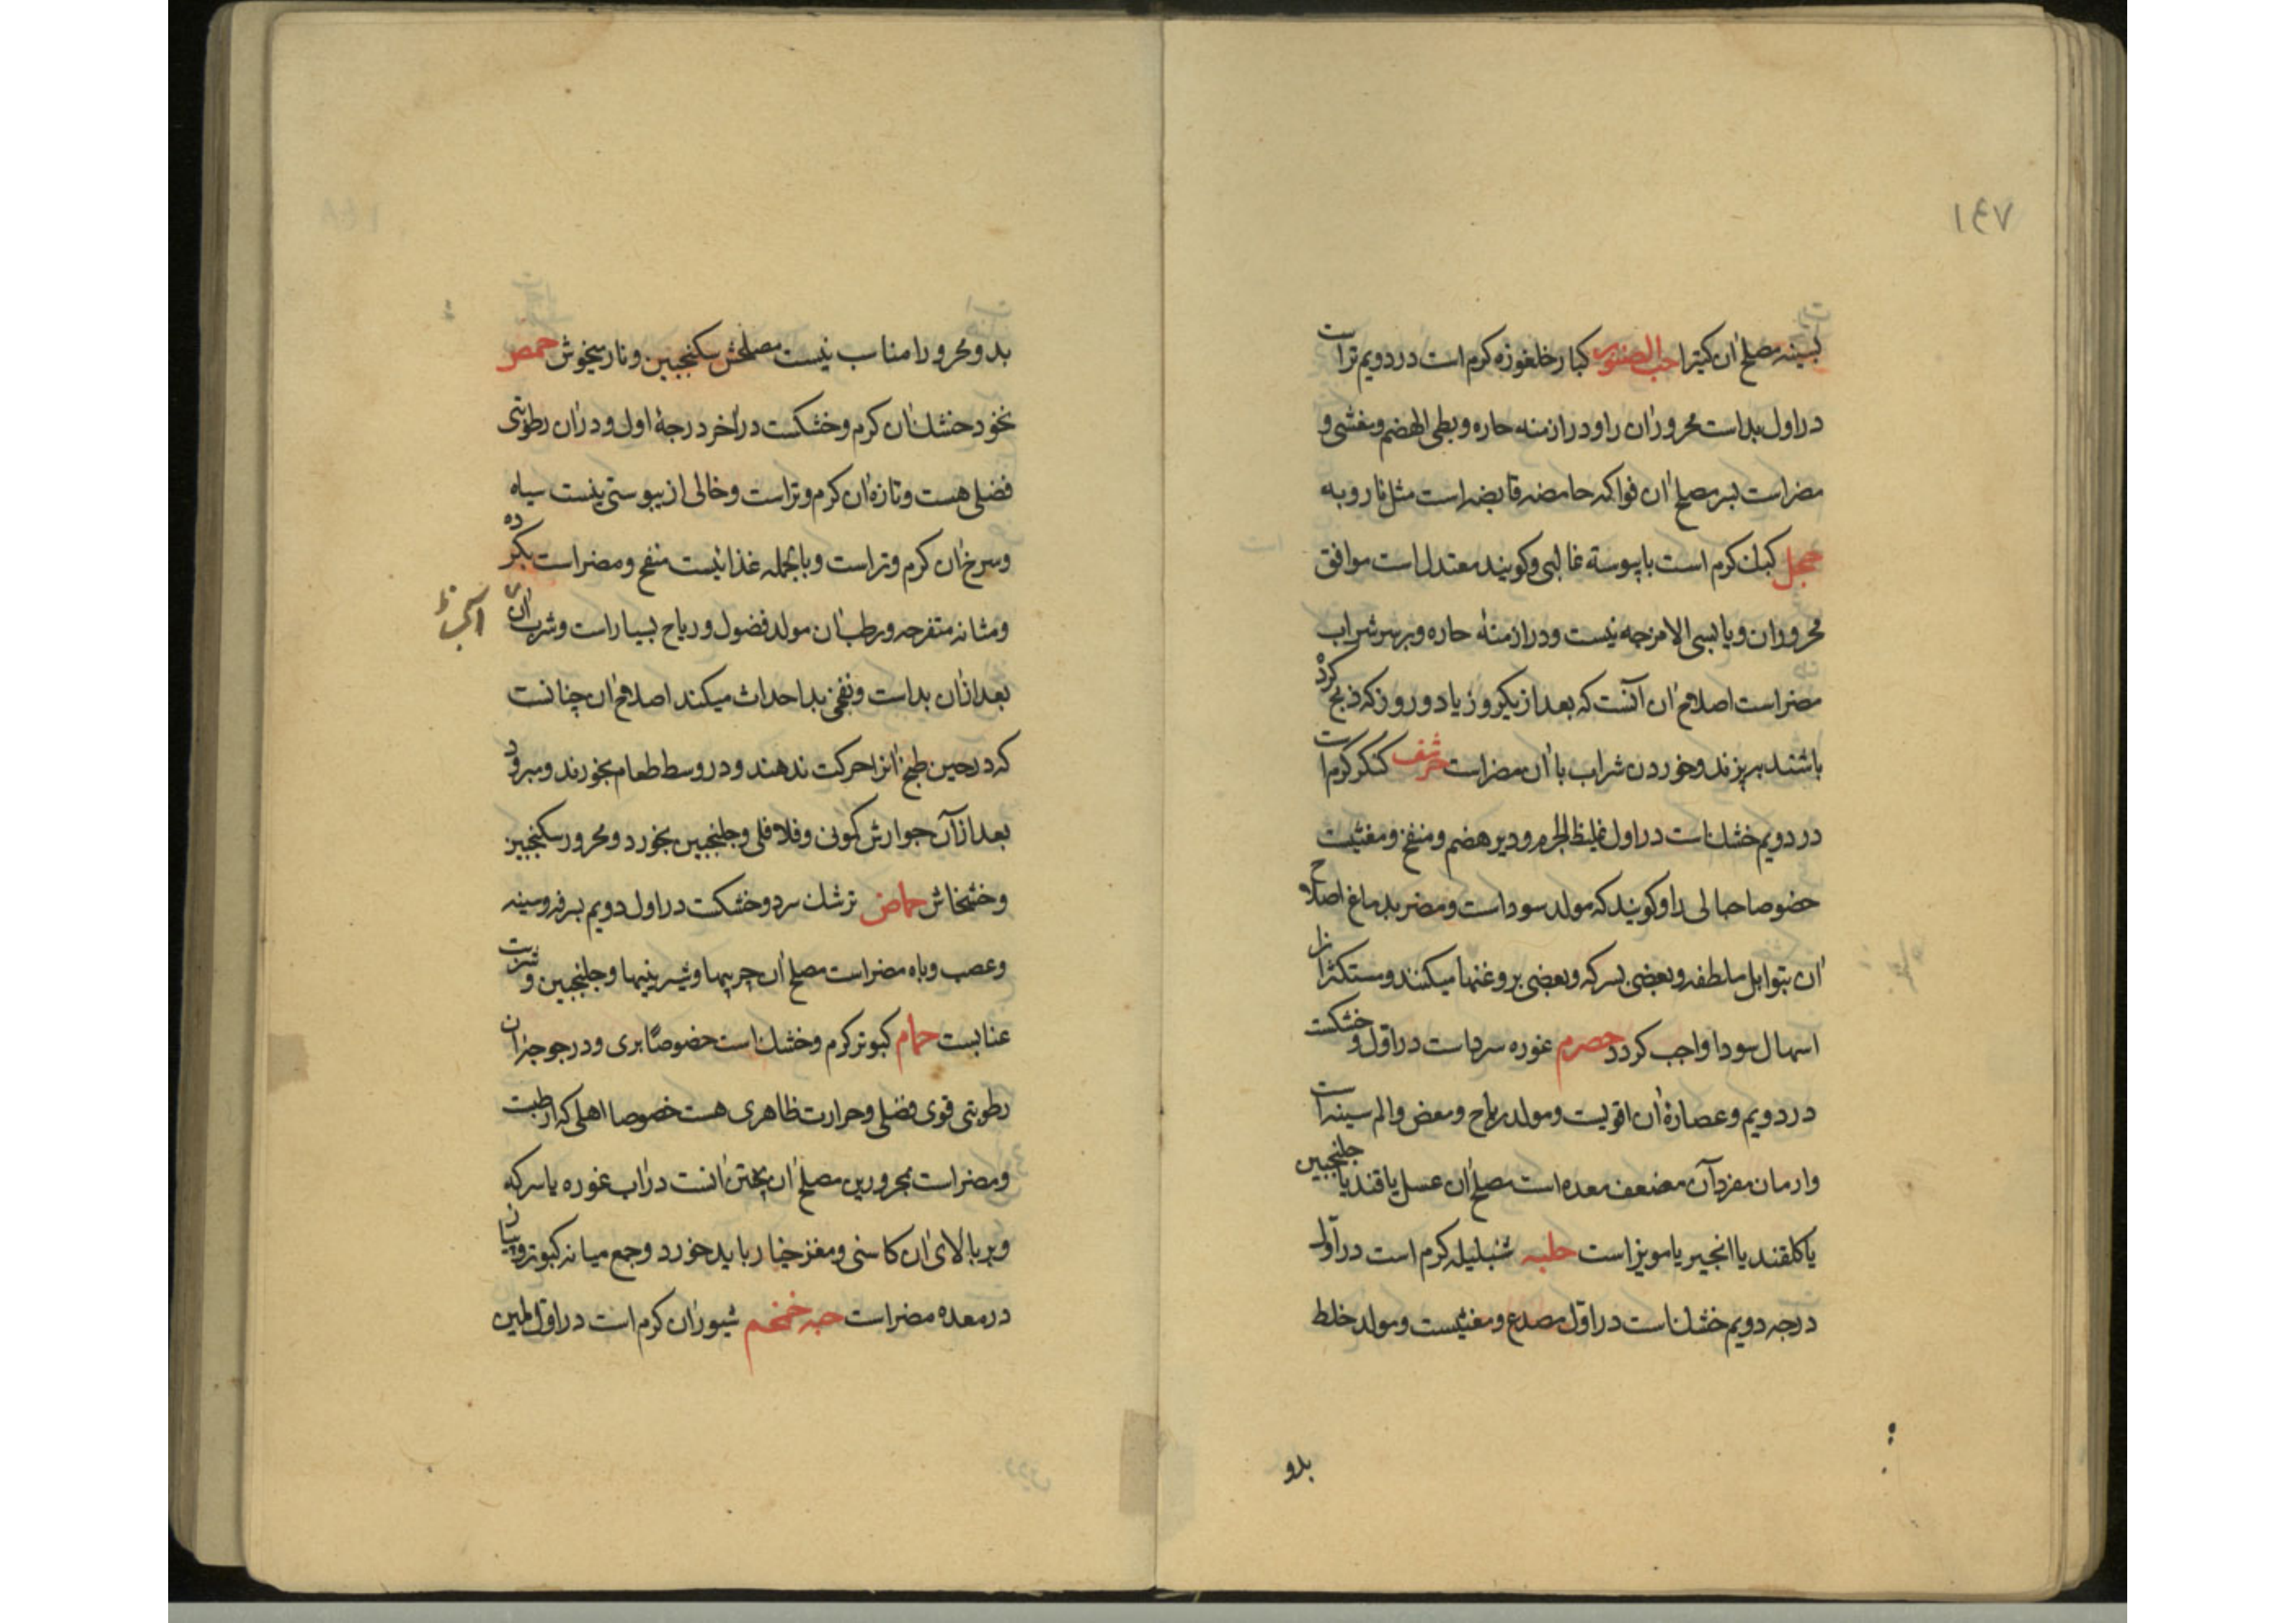 ۱٤۷
بسینه مصلح ان کتیرا حب الصنوبر کبار خلغوزه کرم است در دویم تر است
در اول بد است محرور ان را و در ازمنه حاره و بطی الهضم و مغشی و
مضر است بسر مصلح ان فواکه حامضه قابضه است مثل نار و به
حجل کبک کرم است با یبوسة غالبی و کویند معتدل است موافق
محروران و یابسی الامزجه نیست و در ازمنهٔ حاره و بر سر شراب
مضر است اصلاح ان آنست که بعد از یکروز یا دو روز که ذبح کرده
باشند بپزند و خوردن شراب با ان مضر است حرشف کنکر کرم است
در دویم خشک است در اول غلیظ الجرم و دیر هضم و منفخ و مغثیست
خصوصا جبالی را و کویند که مولد سود است و مضر بدماغ اصلاح
ان بتوابل ملطفه و بعضی بسرکه و بعضی بروغنها میکنند و مستکثر انرا
اسهال سودا واجب کردد حصرم غوره سرد است در اول و خشکست
در دویم و عصارهٔ ان اقویست و مولد ریاح و مغص و الم سینه است
و ارمان مفرد آن مضعف معده است مصلح ان عسل یا قند یا جلنجبین
یا کلقند یا انجیر یا مویز است حلبه شنبلیله کرم است در اول
درجه دویم خشک است در اول مصدع و مغثیست و مولد خلط
بدو
بد و محرور را مناسب نیست مصلحش سکنجبین و نار میخوش حمص
نخود خشک ان کرم و خشکست در آخر درجهٔ اول و در ان رطوبتی
فضلی هست و تازه ان کرم و تر است و خالی از یبوستی نیست سیاه
و سرخ ان کرم و تر است و بالجمله غذائیست منفخ و مضر است بکرده
و مثانه متقرحه و رطب ان مولد فضول و ریاح بسیار است و شرب ان
بعد از ان بد است و نفخی بد احداث میکند اصلاح ان چنانست
که در حین طبخ انرا حرکت ندهند و در وسط طعام بخورند و مبرود
بعد از آن جوارش کمونی و فلافلی و جلنجبین بخورد و محرور سکنجبین
و خشخاش حماض ترشک سرد و خشکست در اول دویم بسرفه و سینه
و عصب و باه مضر است مصلح ان چربیها و شیرینیها و جلنجبین و شربت
عنابست حمام کبوتر کرم و خشک است خصوصًا بری و در جوجز ان
رطوبتی قوی فضلی و حرارت ظاهری هست خصوصا اهلی که ارطبت
و مضر است بمحرورین مصلح ان پختن انست در اب غوره یا سرکه
و بر بالای ان کاسنی و مغز خیار باید خورد و جمع میانه کبوتر و پیاز
در معده مضر است حبه خمخم شیوران کرم است در اول ملین